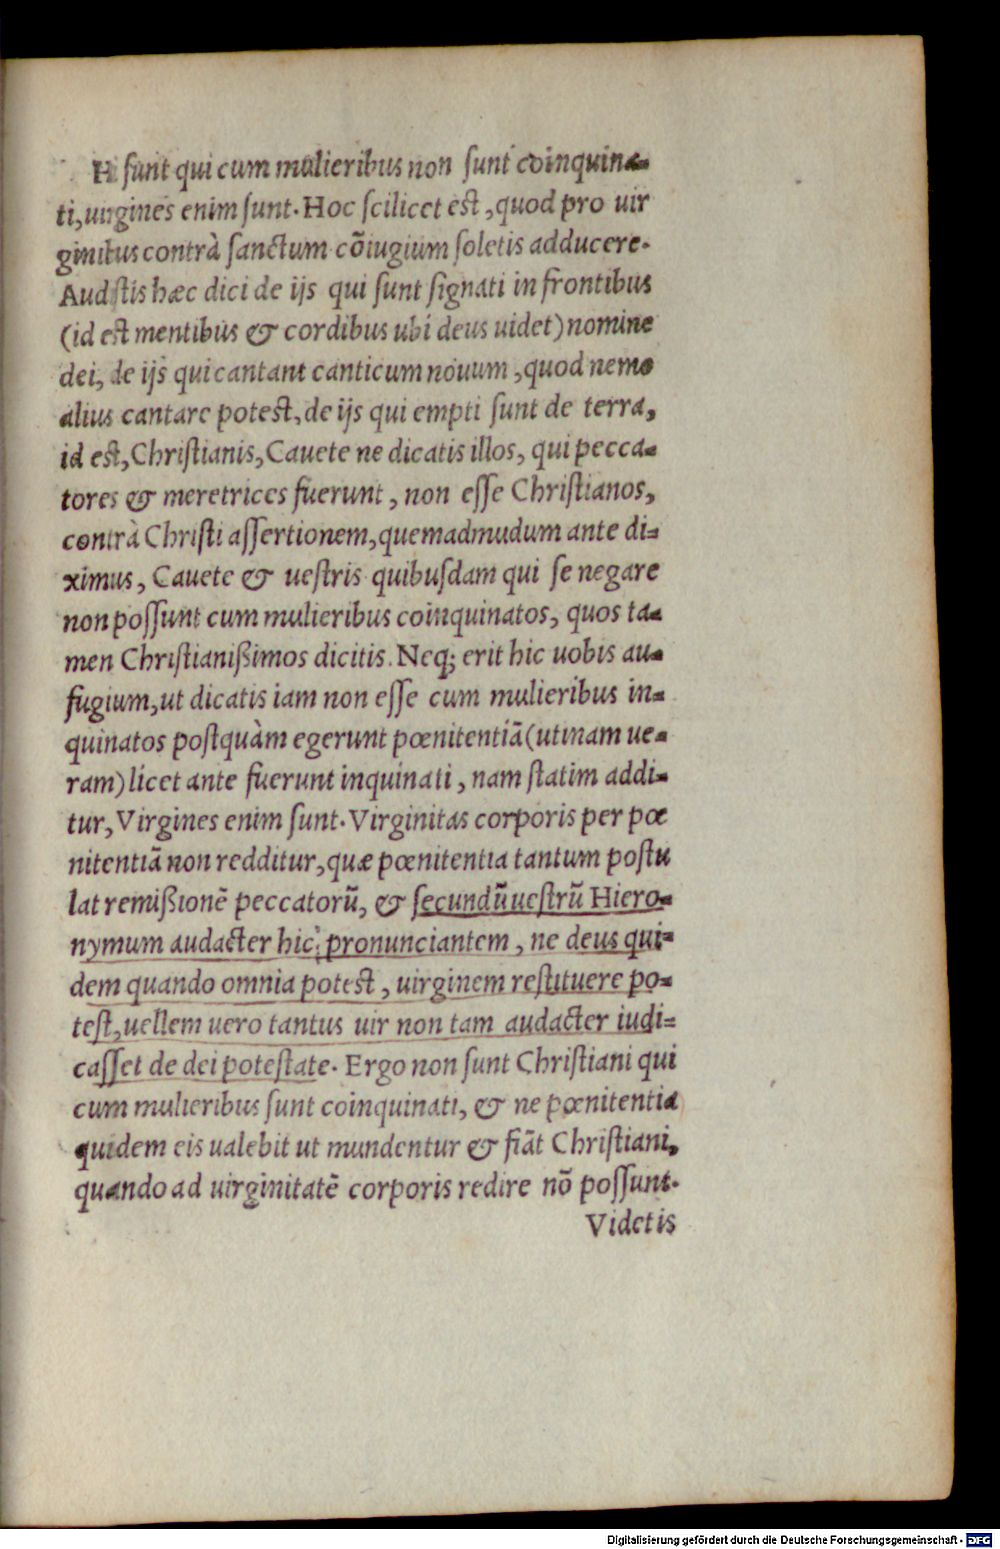 Hi sunt qui cum mulieribus non sunt coinquina-
ti, uirgines enim sunt. Hoc scilicet est, quod pro uir
ginibus contrà sanctum cōiugium soletis adducere.
Audistis hæc dici de ijs qui sunt signati in frontibus
(id est mentibus & cordibus ubi deus uidet) nomine
dei, de ijs qui cantant canticum nouum, quod nemo
alius cantare potest, de ijs qui empti sunt de terra,
id est, Christianis, Cauete ne dicatis illos, qui pecca-
tores & meretrices fuerunt, non esse Christianos,
contrà Christi assertionem, quemadmudum ante di-
ximus, Cauete & uestris quibusdam qui se negare
non possunt cum mulieribus coinquinatos, quos ta-
men Christianißimos dicitis. Neq; erit hic uobis au-
fugium, ut dicatis iam non esse cum mulieribus in-
quinatos postquàm egerunt pœnitentiā (utinam ue-
ram) licet ante fuerunt inquinati, nam statim addi-
tur, Virgines enim sunt. Virginitas corporis per pœ
nitentiā non redditur, quæ pœnitentia tantum postu
lat remißionē peccatorū, & secundū uestrū Hiero-
nymum audacter hic pronunciantem, ne deus qui-
dem quando omnia potest, uirginem restituere po-
test, uellem uero tantus uir non tam audacter iudi-
casset de dei potestate. Ergo non sunt Christiani qui
cum mulieribus sunt coinquinati, & ne pœnitentia
quidem eis ualebit ut mundentur & fiāt Christiani,
quando ad uirginitatē corporis redire nō possunt.
Videtis
Digitalisierung gefördert durch die Deutsche Forschungsgemeinschaft - DFG